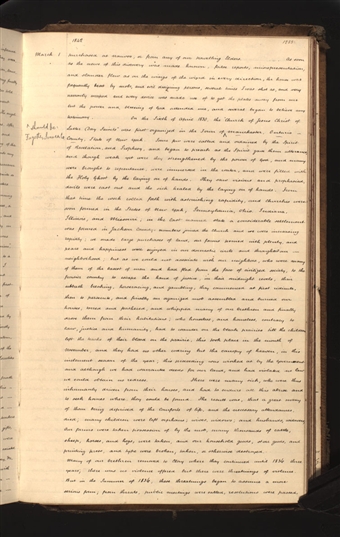 1842
1842.
March 1
purchased or removed, or from any of our revolting Mason. As soon
as the news of this discovery was made known, false reports, misrepresentation,
and slander flew as on the wings of the wind in every direction, the house was
frequently beset by mobs, and evil designing persons, several times I was shot at, and very
narrowly escaped and every device was made use of to get the plates away from me
but the power and blessing of God attended me, and several began to believe my
testimony. On the Sixth of April 1830, the Church of Jesus Christ of
* should be
Latter Day Saints was first organized in the Town of Manchester, Ontario
Fayette, Seneca Co.
County, State of New York. Some few were called and ordained by the Spirit
of Revelation, and Prophecy, and began to preach as the Spirit gave them utterance
and though weak yet were they strengthened by the power of God, and many
were brought to repentance, were immersed in the water, and were filled with
the Holy Ghost by the laying on of hands. They saw visions and prophesied,
devils were cast out and the sick healed by the laying on of hands. From
that time the work rolled forth with astonishing rapidity, and Churches were
soon formed in the States of New York, Pennsylvania, Ohio, Indiana,
Illinois, and Missouri, in the last named State a considerable settlement
was formed in Jackson County; numbers joined the Church and we were increasing
rapidly; we made large purchases of land, our farms teemed with plenty, and
peace and happiness was enjoyed in our domestic circle and throughout our
neighborhood; but as we could not associate with our neighbors, who were many
of them of the basest of men and had fled from the face of civilized society, to the
frontier country to escape the hand of justice, in their midnight revels, their
sabbath breaking, horseracing, and gambling, they commenced at first ridicule,
then to persecute, and finally an organized mob assembled and burned our
houses, tarred and feathered, and whipped many of our brethren and finally
drove them from their habitations, who houseless, and homeless, contrary to
law, justice and humanity, had to wander on the bleak prairies till the children
left the tracks of their blood on the prairie, this took place in the month of
November, and they had no other covering but the canopy of heaven, in this
inclement season of the year; this proceeding was winked at by the government
and although we had warrantee deeds for our land, and had violated no law
we could obtain no redress. There were many sick, who were thus
inhumanly driven from their houses, and had to endure all this abuse and
to seek homes where they could be found. The result was, that a great many
of them being deprived of the comforts of life, and the necessary attendances,
died; many children were left orphans; wives, widows; and husbands widowers
Our farms were taken possession of by the mob, many thousands of cattle,
sheep, horses, and hogs, were taken, and our household goods, store goods, and
printing press, and type were broken, taken, or otherwise destroyed.
Many of our brethren removed to Clay where they continued until 1836 three
years; there was no violence offered but there were threatenings of violence.
But in the Summer of 1836, these threatenings began to assume a more
serious form; from threats, public meetings were called, resolutions were passed,